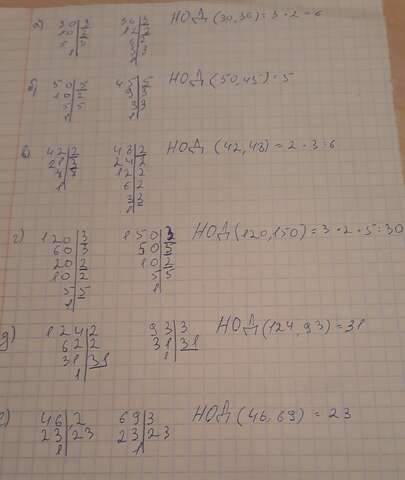 а) 30|3 36|2 НОД (30,36)=3·2=6
10|2 18|2
5|5 9|3
1 3|3
б) 50|5 45|5 НОД (50,45)=5
10|2 9|3
5|5 3|3
1 1
в) 42|2 48|2 НОД (42,48)=2·3=6
21|3 24|2
7|7 12|2
1 6|2
3|3
1
г) 120|2 150|3 НОД (120,150)=3·2·5=30
60|3 50|5
20|2 10|2
10|2 5|5
5|5 1
1
д) 124|2 93|3 НОД (124,93)=31
62|2 31|31
31|31 1
1
е) 46|2 69|3 НОД (46,69)=23
23|23 23|23
1 1